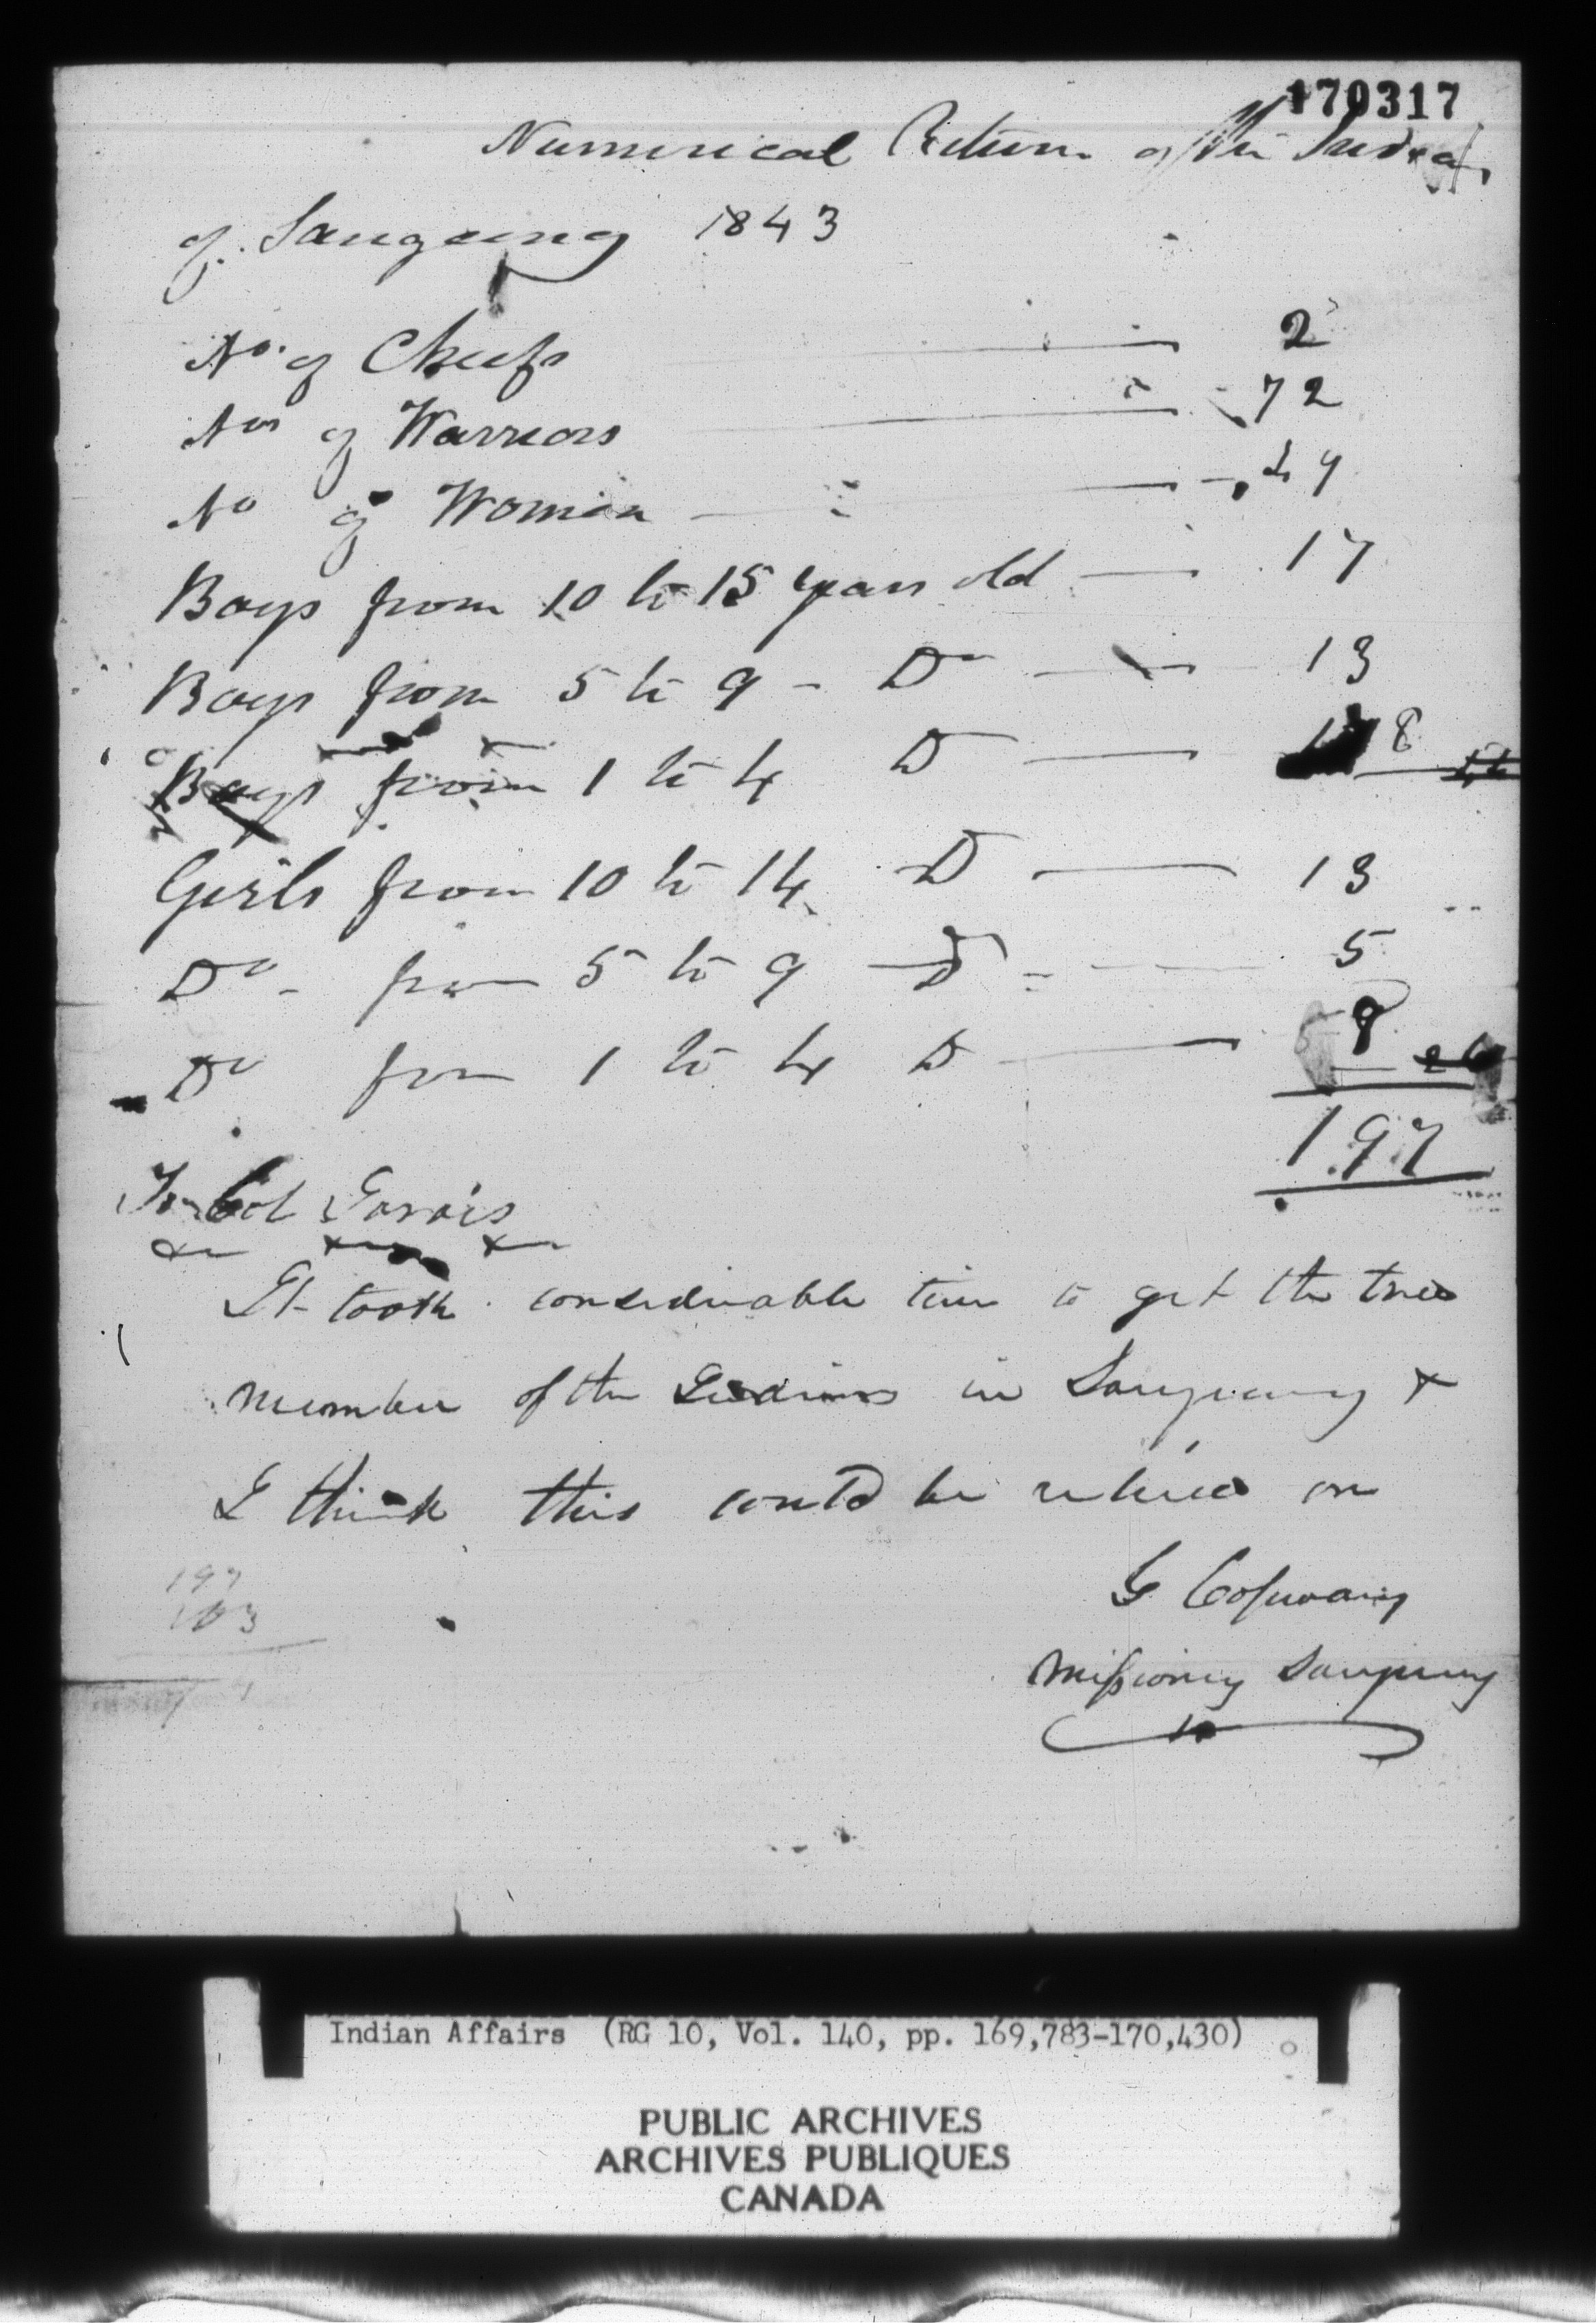 170317
Numerical Return of the Indians
of Saugeeng 1843
No. of Chiefs 2
Nos of Warriors 72
No of Women
Boys from 10 to 15 years old 17
Boys from 5 to 9 - Do 13
Boys from 1 to 4 D 8
Girls from 10 to 14 D 13
Do - from 5 to 9 D 5
Do from 1 to 4 D
197
To Col Jarvis
It took considerable time to get the true
number of the Indians in Saugeeng &
I think this could be relied on
G Copway
Missionary Saugeeng
197
Indian Affairs (RG 10, Vol. 140, pp. 169,783-170,430)
PUBLIC ARCHIVES
ARCHIVES PUBLIQUES
CANADA